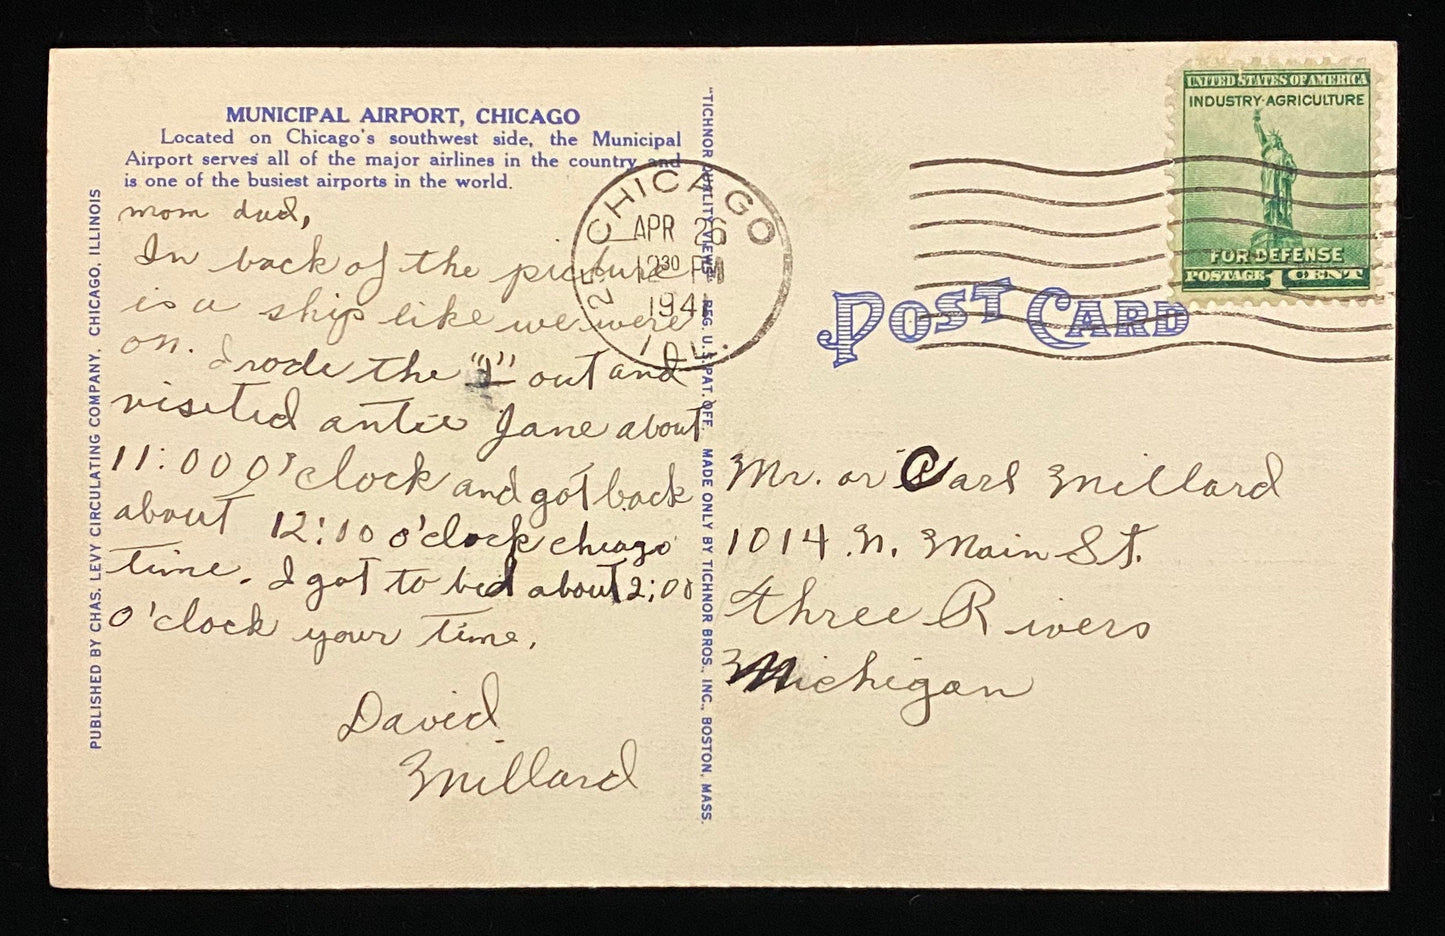 MUNICIPAL AIRPORT, CHICAGO
Located on Chicago's southwest side, the Municipal
Airport serves all of the major airlines in the country and
is one of the busiest airports in the world.
mom dad,
In back of the picture
is a ship like we were
on. I rode the "L" out and
visited antie Jane about
11:00 O'clock and got back
about 12:10 o'clock chicago
time. I got to bed about 2:00
o'clock your time.
David
Millard
PUBLISHED BY CHAS. LEVY CIRCULATING COMPANY, CHICAGO, ILLINOIS
"TICHNOR QUALITY VIEWS" REG. U.S. PAT. OFF. MADE ONLY BY TICHNOR BROS., INC., BOSTON, MASS.
CHICAGO
APR 26
12 30 PM
1941
ILL.
UNITED STATES OF AMERICA
INDUSTRY·AGRICULTURE
FOR·DEFENSE
POSTAGE 1 CENT
POST CARD
Mr. or Carl Millard
1014 N. Main St.
three Rivers
Michigan